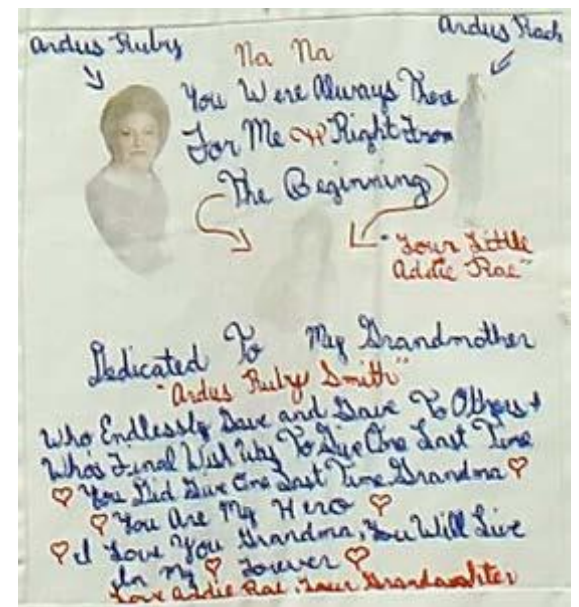 Ardus Ruby
Ardus Rach
Na Na
You Were Always There
For Me Right From
The Beginning
"Your Little
Addie Rae"
Dedicated To My Grandmother
"Ardus Ruby Smith"
Who Endlessly Gave and Gave To Others +
Who's Final Wish Was To Give One Last Time
♡ You Did Give One Last Time Grandma ♡
♡ You Are My Hero ♡
♡ I Love You Grandma, You Will Live
In My ♡ Forever ♡
Love Addie Rae, Your Grandaughter